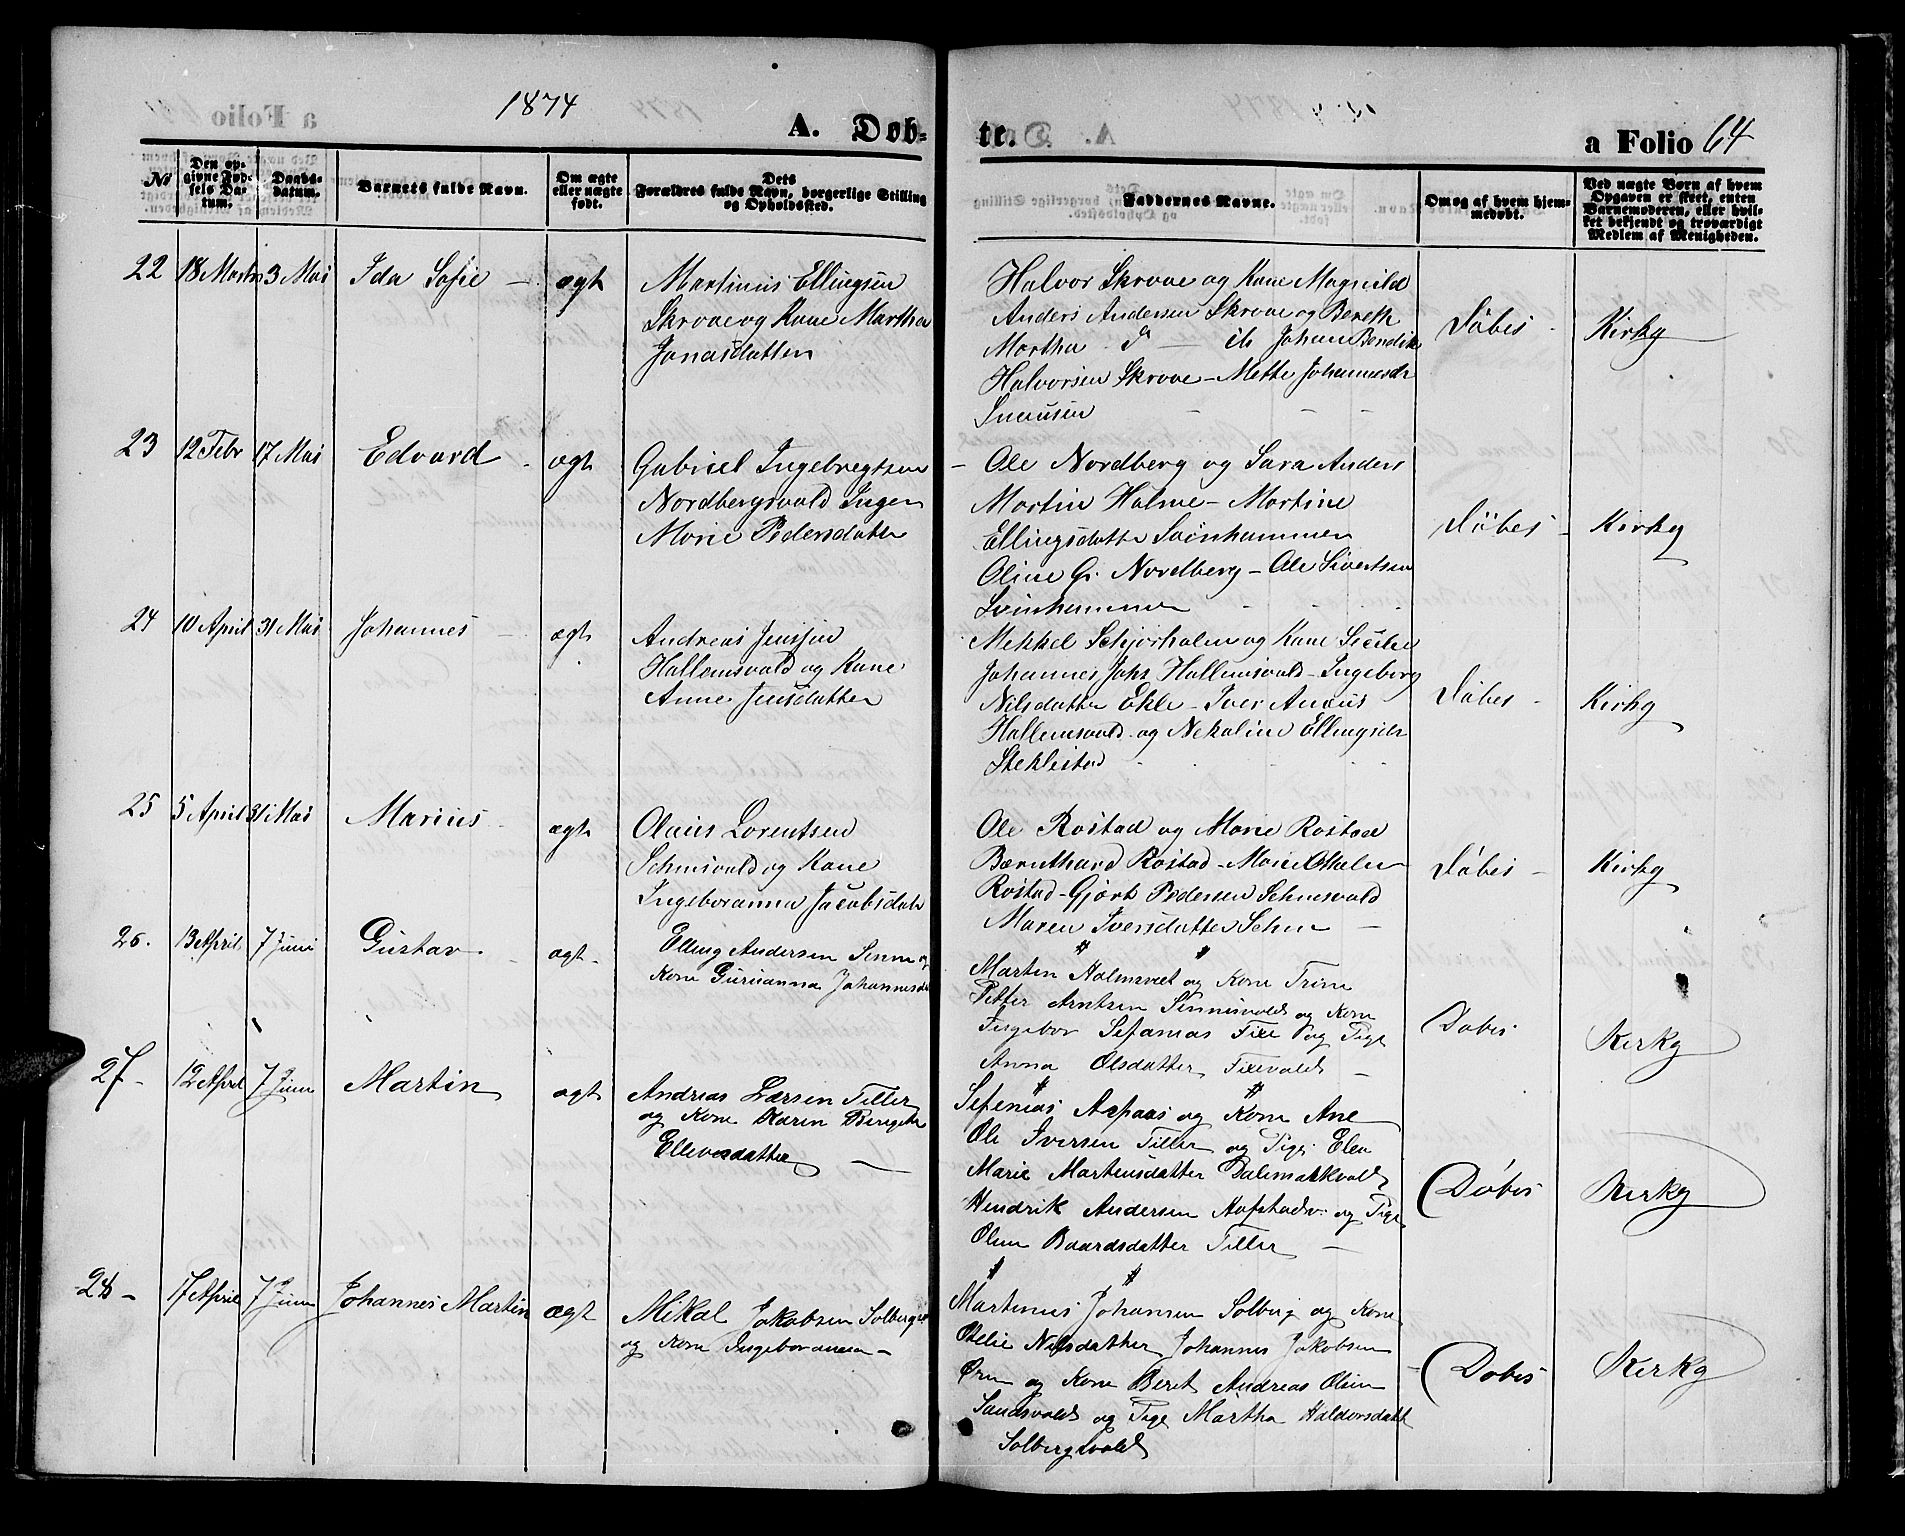 1874
A. Døb-
te.
a Folio 64
No
Den op-
givne Fød-
sels Da-
tum.
Daabs-
datum.
Barnets fulde Navn.
Om ægte
eller uægte
født.
Dets
Forældres fulde Navn, borgerlige Stilling
og Opholdssted.
Faddernes Navne.
Om og af hvem hjem-
medøbt.
Ved uægte Børn af hvem
Opgaven er skeet, enten
Barnemoderen, eller hvil-
ket bekjendt og troværdigt
Medlem af Menigheden.
22 18 Marts 3 Mai Ida Sofie ægt
Martinus Ellingsen
Skrove og Kone Martha
Jonasdatter
Halvor Skrove og Kone Magnild
Anders Andersen Skrove og Bereth
Martha Johan Bendik
Halvorsen Skrove - Mette Johannesdr
Snausen
Döbes - Kirky
23 12 Febr 17 Mai Edvard ægt
Gabriel Ingebregtsen
Nordbergsvald Inger
Marie Pedersdatter
- Ole Nordberg og Sara Anders
Martin Holme - Martine
Ellingsdatter Svinhammer
Oline G. Nordberg - Ole Sivertsen
Svinhammer
Döbes - Kirky
24 10 April 31 Mai Johannes ægt
Andreas Jenssen
Hallemsvald og Kone
Anne Jensdatter
Mekkel Schjørholem og Kone Sicilie
Johannes Johs Hallemsvald - Ingeborg
Nilsdatter Ekle - Iver Anæus
Hallemsvald og Nekoline Ellingsdr
Steklestad
Döbes - Kirky
25 5 April 31 Mai Marius ægt
Olaus Lorentsen
Schnsvald og Kone
Ingeboranna Jacobsdatr
Ole Rostad og Marie Rostad
Bærnthard Rostad - Marie
Rostad - Gjørt Pedersen Schnesvald
Maren Iversdatter Sehn -
Döbes - Kirky
26. 13 April 7 Juni Gustav ægt -
Elling Andersen Sinne og
Kone Gurianna Johannesd
Marten Holmsvet og Kone Trine
Petter Arntsen Sinnisvald og Kone
Ingebor Sefanias Fixe og Pige
Anna Olsdatter Fixevald -
Dobes Kerkg
27 - 12 April 7 Juni Martin ægt
Andreas Larsen Tiller
og Kone Karin Bergitte
Ellevesdatter -
Sefenias Aspaas og Kone Ane
Ole Iversen Tiller og Pige Elen
Marie Martensdatter Dalemarkvald
Hendrik Andersen Hofstadv. og Pige
Olene Baardsdatter Tiller -
Döbes Kerkg
28 - 17 April 7 Juni Johannes Martin ægt
Mikal Jakobsen Solbergs
og Kone Ingeboranna -
Martinus Johansen Solberg og Kone
Otelie Nilsdatter Johannes Jakobsen
Ørn og Kone Beret Andreas Olsen
Sandsvald og Pige Martha Haldorsdatt
Solbergsvald
Dobes Kerkg